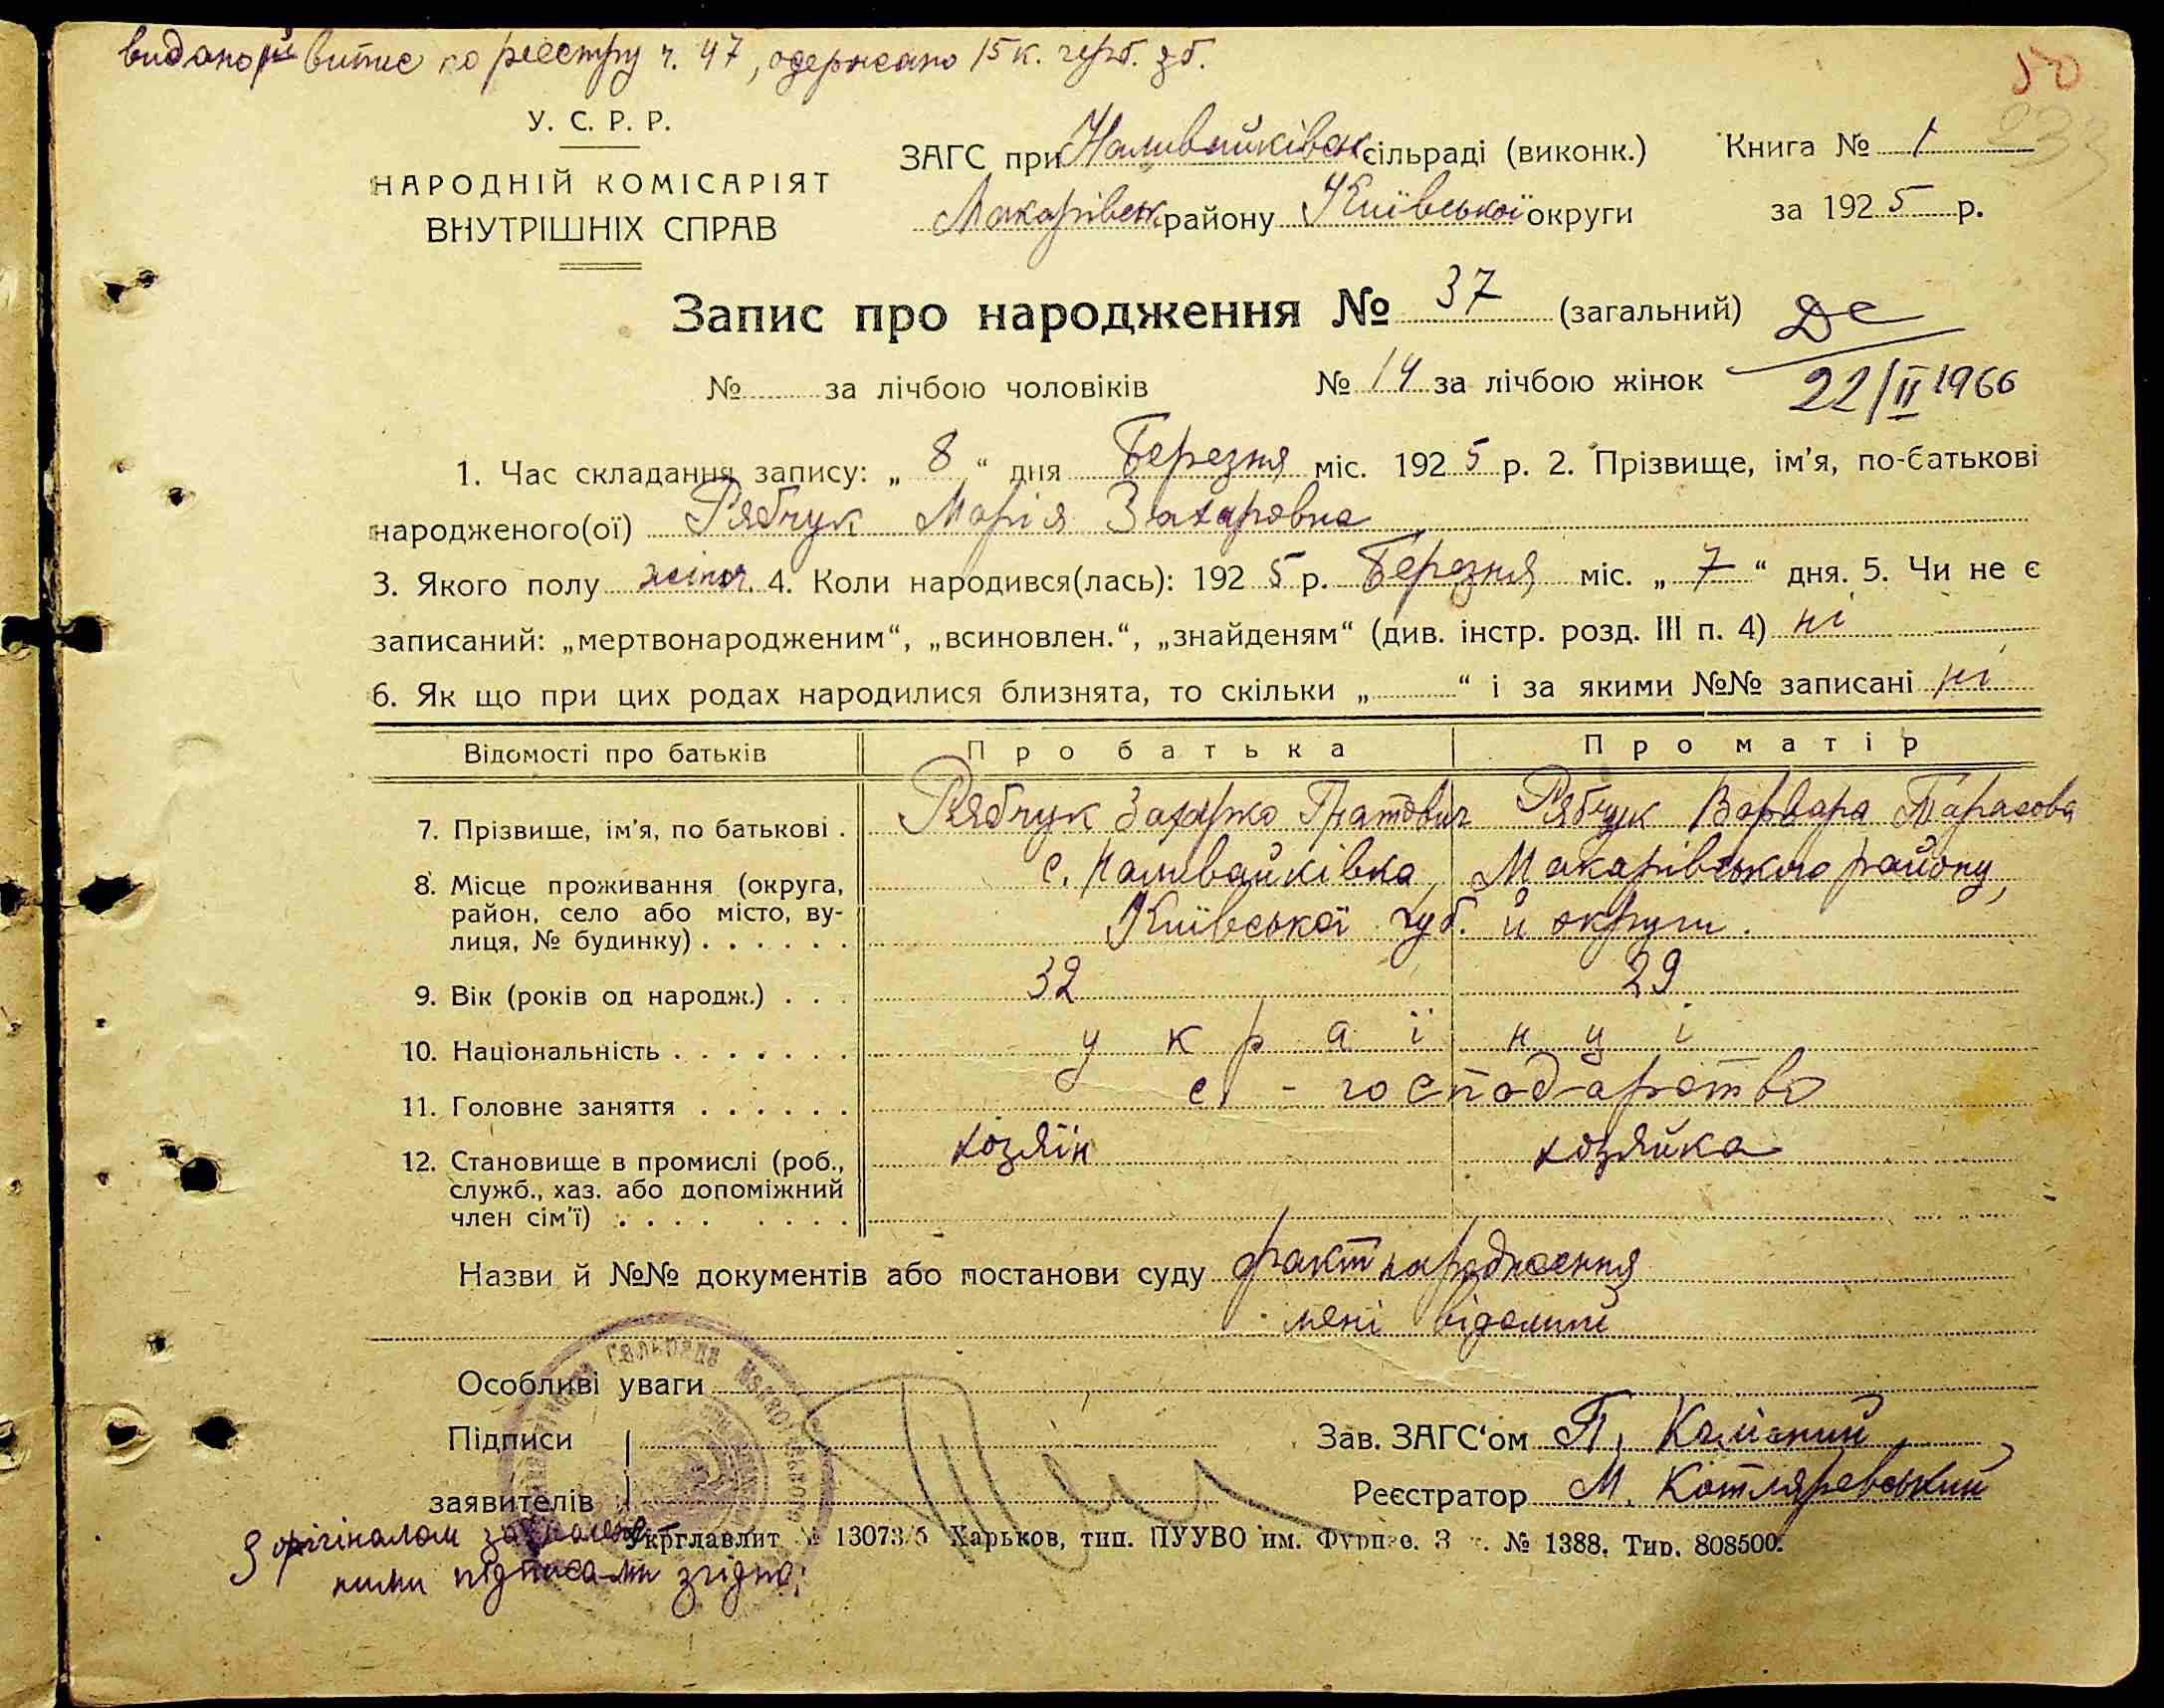 видано витис по реєстру ч. 47, одержано 15 к. герб. зб.
50
233
У. С. Р. Р.
НАРОДНІЙ КОМІСАРІЯТ
ВНУТРІШНІХ СПРАВ
ЗАГС при Наливайківськ сільраді (виконк.) Книга № 1
Макарівськ району Київської округи за 1925 р.
Запис про народження № 37 (загальний)
№ за лічбою чоловіків № 14 за лічбою жінок
22/II 1966
1. Час складання запису: „ 8 “ дня Березня міс. 1925 р. 2. Прізвище, ім'я, по-батькові
народженого(ої) Рябчук Марія Захаровна
3. Якого полу жіноч. 4. Коли народився(лась): 1925 р. Березня міс. „ 7 “ дня. 5. Чи не є
записаний: „мертвонародженим“, „всиновлен.“, „знайденям“ (див. інстр. розд. III п. 4) ні
6. Як що при цих родах народилися близнята, то скільки „ “ і за якими №№ записані ні
Відомості про батьків Про батька Про матір
7. Прізвище, ім'я, по батькові . Рябчук Захарко Гнатович Рябчук Варвара Тарасова
8. Місце проживання (округа, с. Наливайківка, Макарівського району,
район, село або місто, ву- Київської губ. й округи.
лиця, № будинку) . . . . . .
9. Вік (років од народж.) . . . 32 29
10. Національність . . . . . . . українці
11. Головне заняття . . . . . . с. - господарство
12. Становище в промислі (роб., хозяїн хозяйка
служб., хаз. або допоміжний
член сім'ї) . . . . . . . .
Назви й №№ документів або постанови суду факт народження
мені відомий
Особливі уваги
Підписи Зав. ЗАГС‘ом П.
заявителів Реєстратор М. Котляревський
Укрглавлит № 13073/5 Харьков, тип. ПУУВО им. Фрунзе. З . № 1388. Тир. 808500.
З орігіналом
ними підписами згідно: